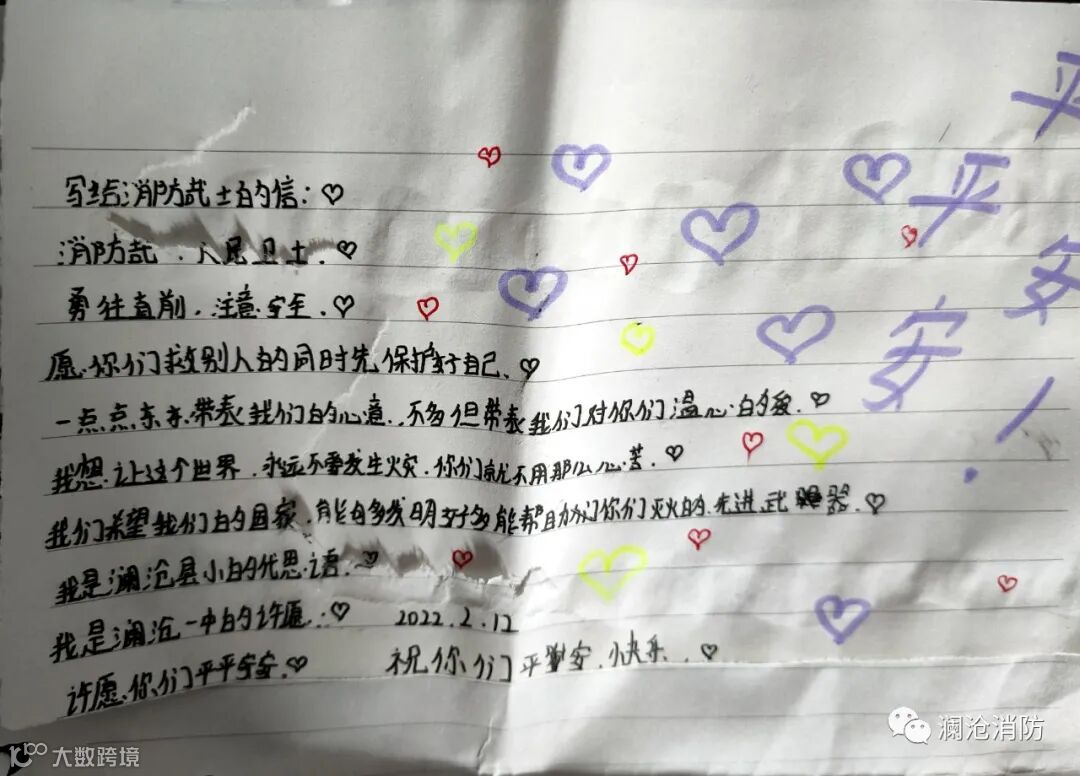 写给消防战士的信:♡
消防战,人民卫士.♡
勇往直前.注意安全.♡
愿你们救别人的同时先保护好自己.♡
一点点东东带表我们的心意.不多但带表我们对你们温心的爱.♡
我想让这个世界.永远不要发生火灾.你们就不用那么心苦.♡
我们希望我们的国家.能自多发明好多能帮助门你们灭火的先进武器.♡
我是澜沧县小的代思语.♡
我是澜沧一中的许愿.♡ 2022.2.12
许愿你们平平安安.♡ 祝你们平安.快乐.♡
平平安安!
澜沧消防
大数跨境